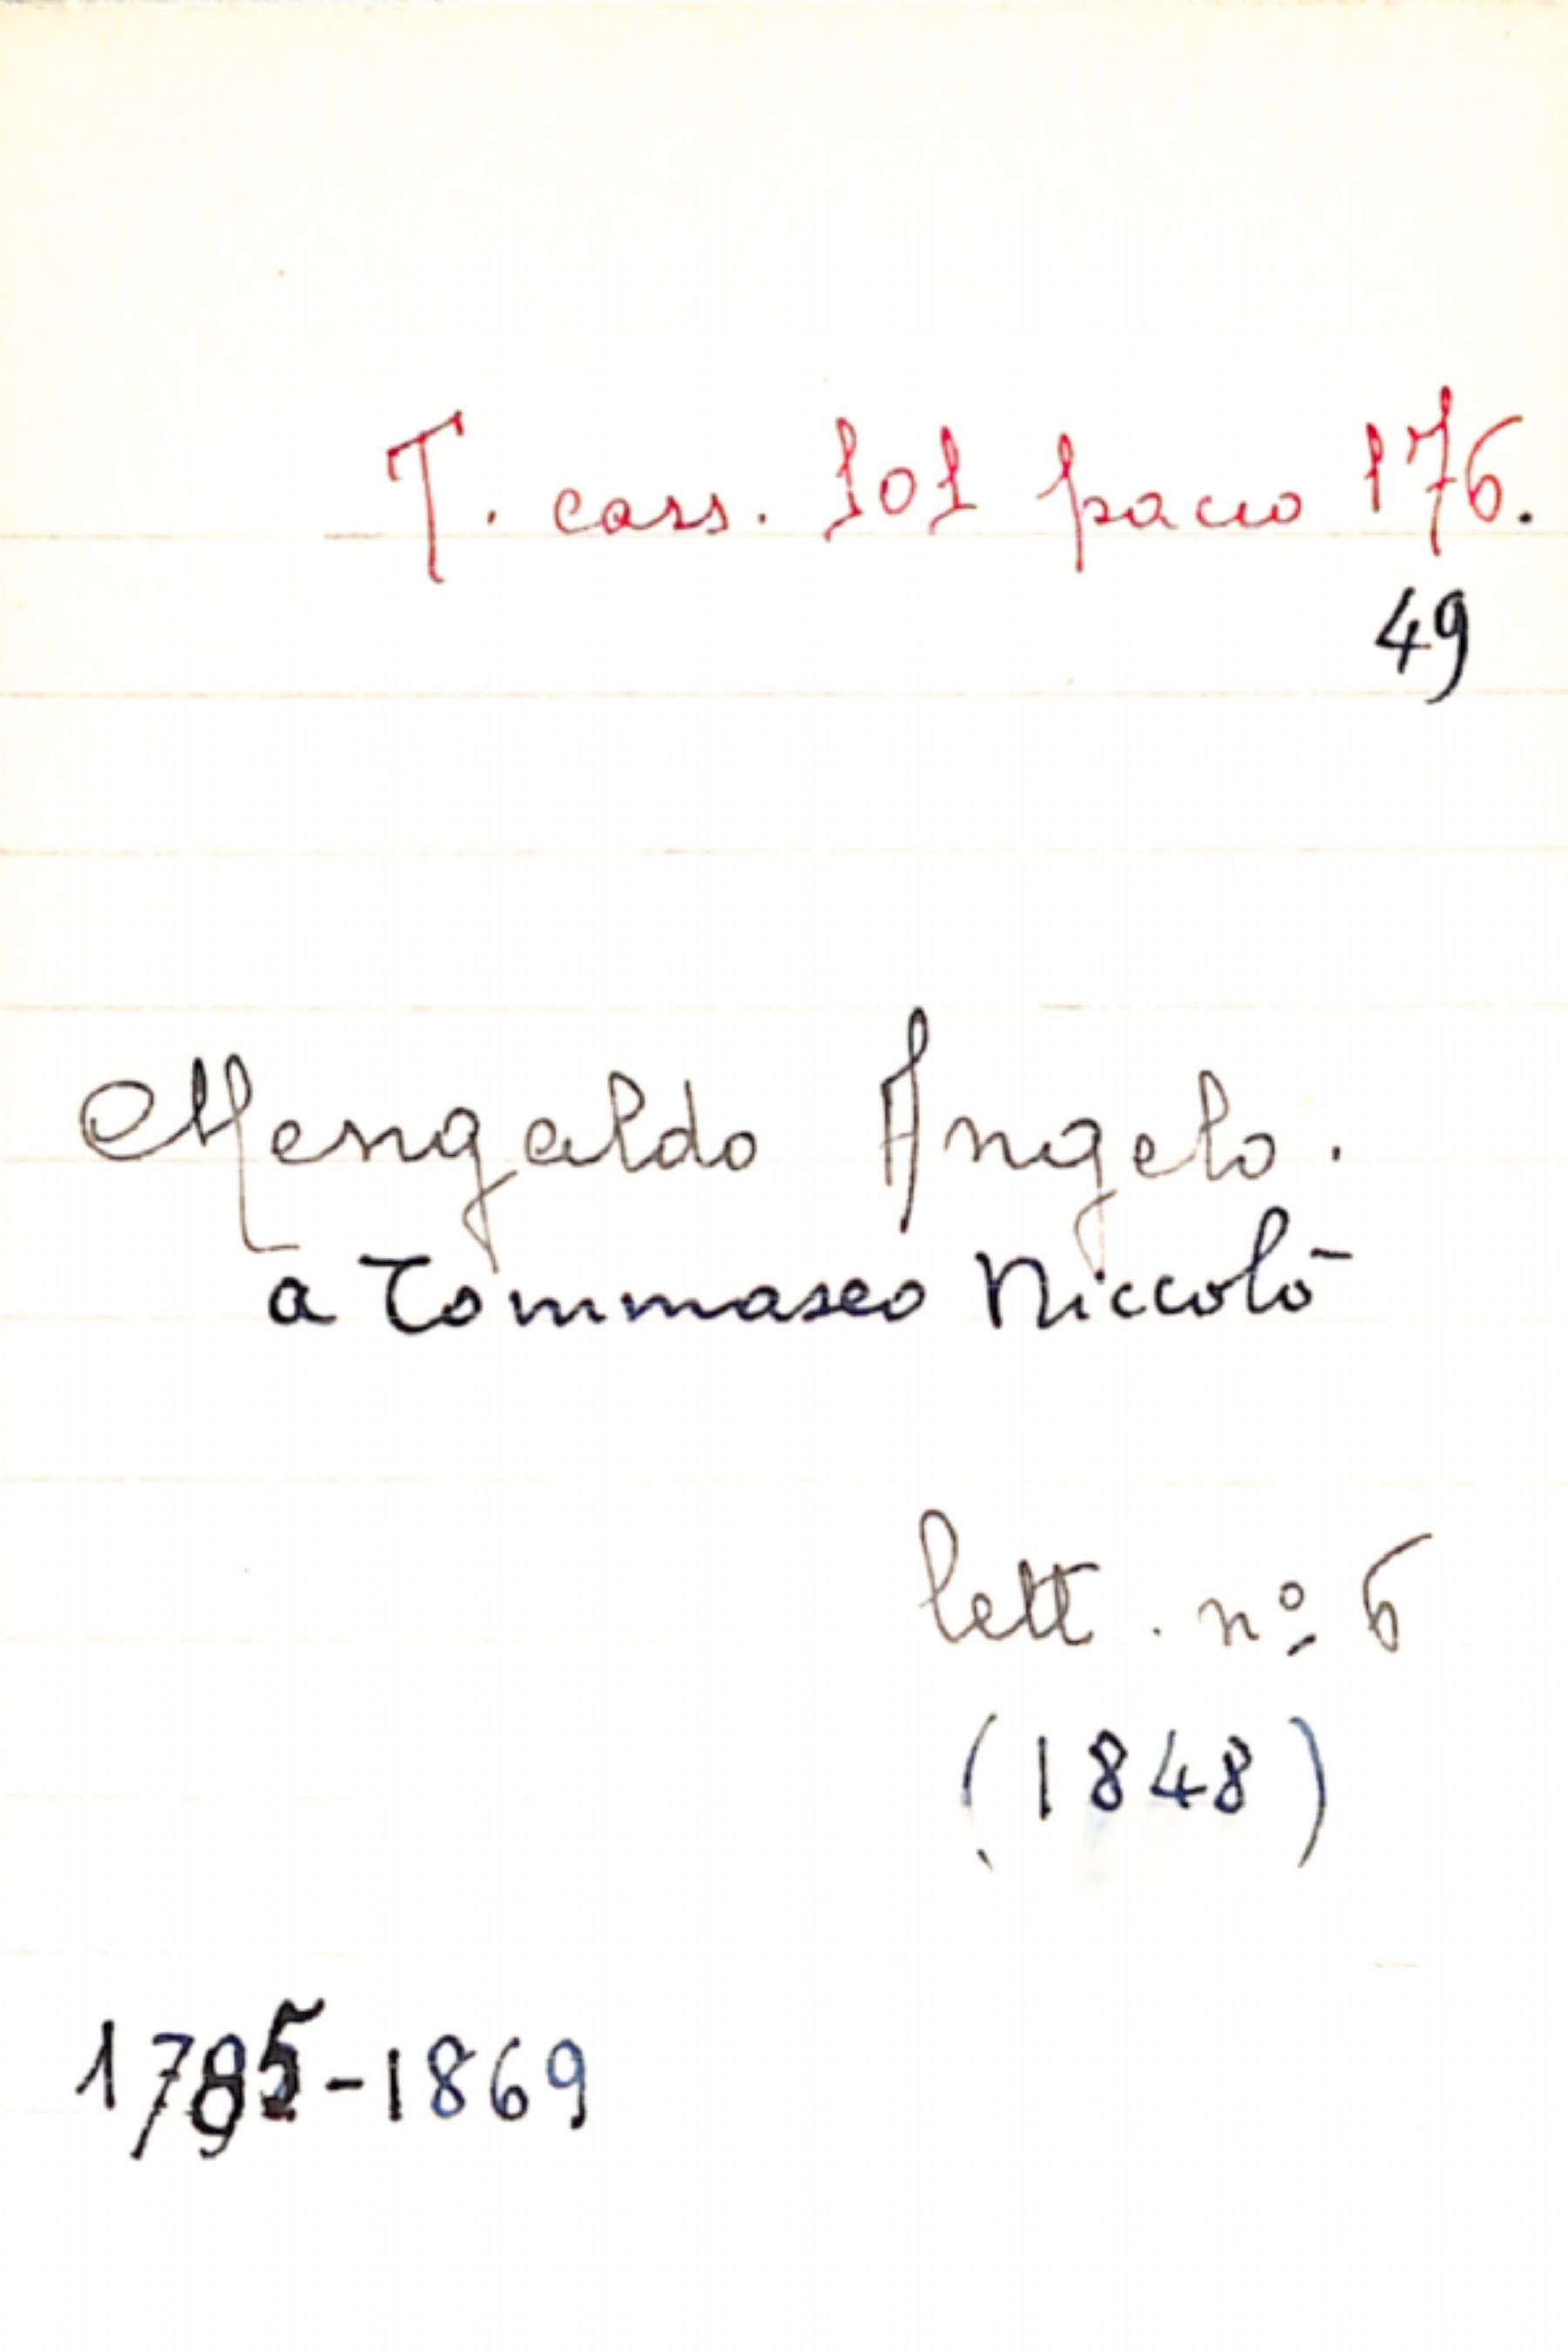 T. cass. 101 pacco 176.
49
Mengaldo Angelo.
a Tommaseo Niccolò
lett. nº 6
(1848)
-1869